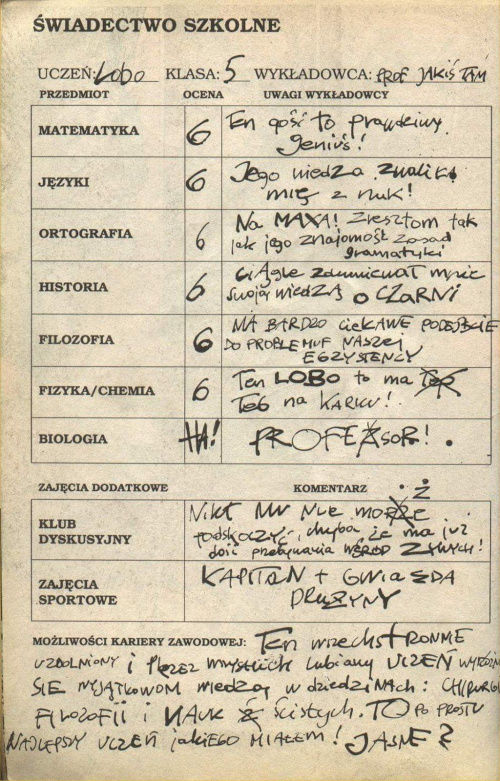 ŚWIADECTWO SZKOLNE
UCZEŃ: Lobo KLASA: 5 WYKŁADOWCA: PROF JAKIŚ TAM
PRZEDMIOT OCENA UWAGI WYKŁADOWCY
MATEMATYKA 6 Ten gość to prawdziwy
geniuś!
JĘZYKI 6 Jego wiedza zwaliła
mię z nuk!
ORTOGRAFIA 6 Na MAXA! Zresztom tak
jak jego znajomość zasad
gramatyki
HISTORIA 6 Ciągle zdumiewał mnie
swoją wiedzą o CZARNI
FILOZOFIA 6 MA BARDZO CIEKAWE PODEJŚCIE
DO PROBLEMUF NASZEJ
EGZYSTENCY
FIZYKA/CHEMIA 6 Ten LOBO to ma
Teb na KARKU!
BIOLOGIA HA! PROFEZSOR!
ZAJĘCIA DODATKOWE KOMENTARZ
KLUB
DYSKUSYJNY
Nikt MU NIE może
podskoczyć, chyba że ma już
dość przebywania WŚRÓD ŻYWYCH!
ZAJĘCIA
SPORTOWE
KAPITAN + GWIAZDA
DRUŻYNY
MOŻLIWOŚCI KARIERY ZAWODOWEJ: Ten wrzechstRONNIE
UZDOLNIONY i przez wszystkich lubiany UCZEŃ
SIE WYJĄTKOWOM wiedzą w dziedzinach: CHIRURGI
FILOZOFII i NAUK Ścisłych. TO PO PROSTU
NAJLEPSZY UCZEŃ jakiego MIAŁEM! JASNE?